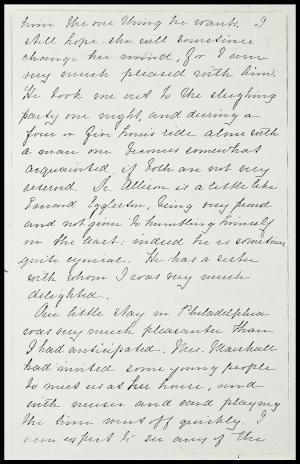 him the one thing he wants. I
still hope she will sometime
change her mind, for I am
very much pleased with him.
He took me out to the sleighing
party one night, and during a
four or five hours ride alone with
a man one becomes somewhat
acquainted, if both are not very
reserved. Dr. Allison is a little like
Edward Eggleston, being very proud
and not given to humbling himself
in the least; indeed he is sometimes
quite cynical. He has a sister
with whom I was very much
delighted.
Our little stay in Philadelphia
was very much pleasanter than
I had anticipated. Mrs. Marshall
had invited some young people
to meet us at her house, and
with music and card playing
the time went off quickly. I
never expect to see any of the